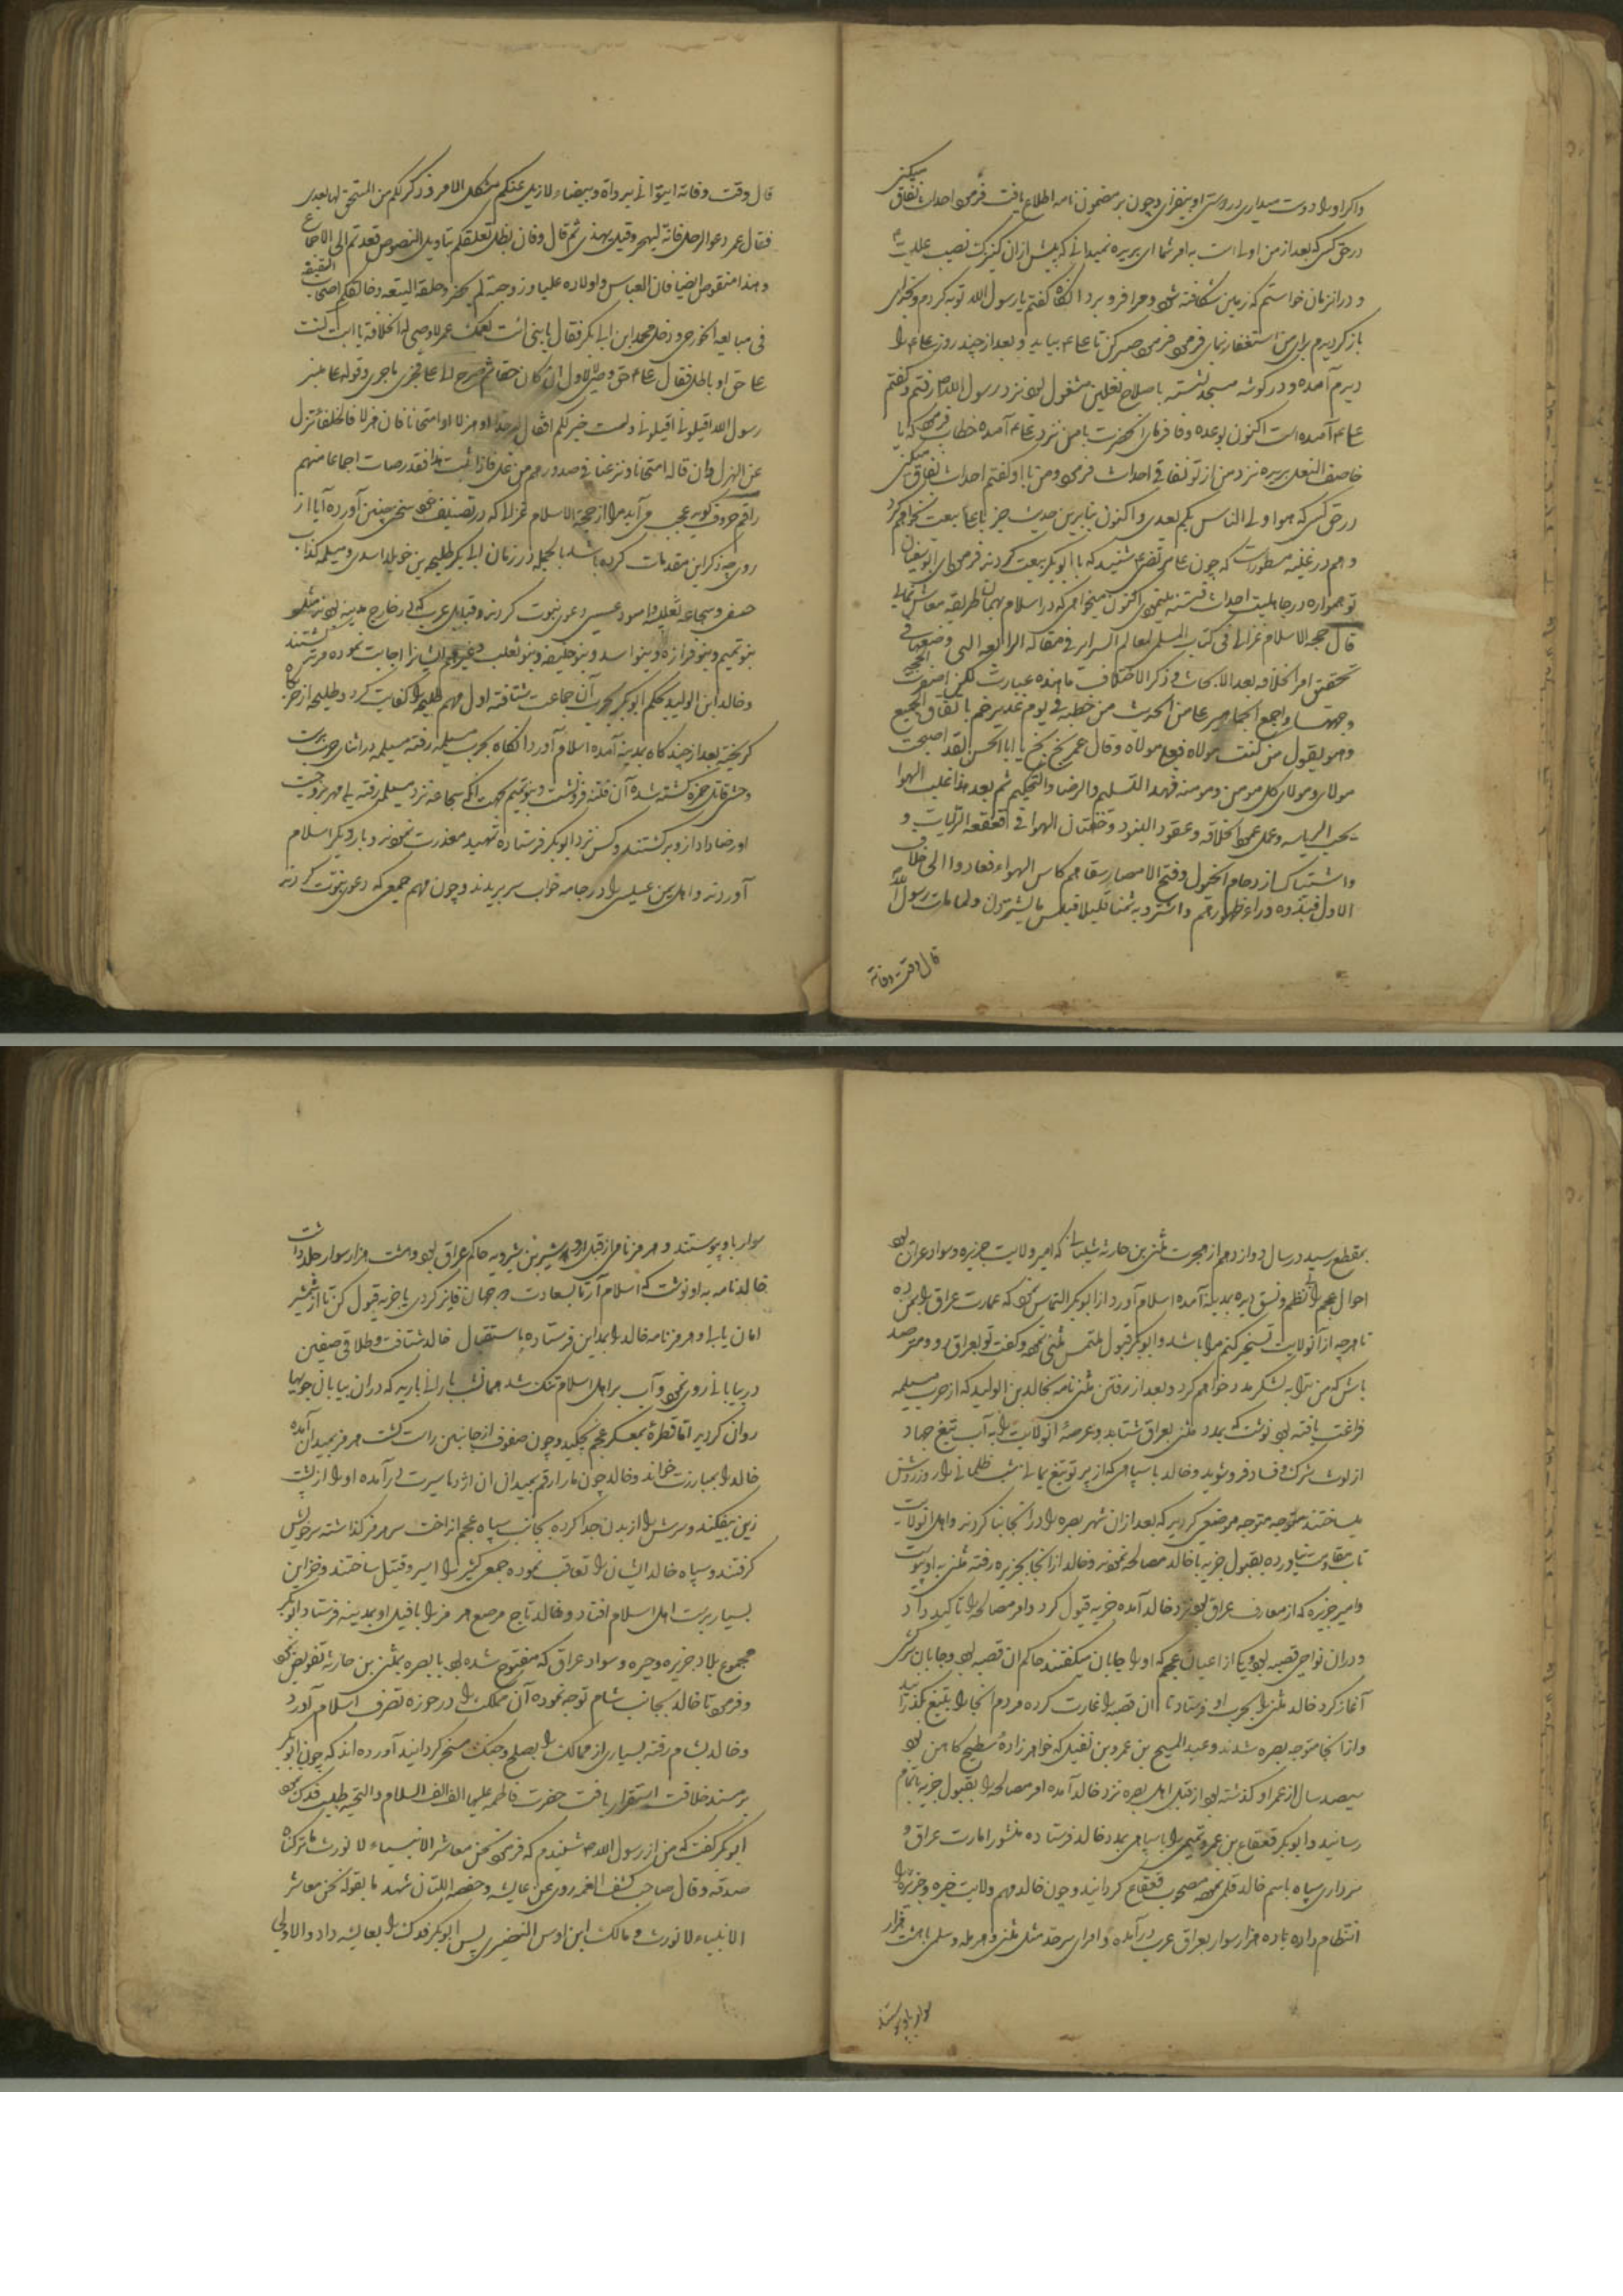 واکر او را دوست میداری در دوستی او بیفزای و چون بر مضمون نامه اطلاع یافت فرمود احداث نفاق میکنی
در حق کسی که بعد از من اولی است به امر شما ای بریره نمیدانی که پیش از آن کنیزک نصیب علیست
و در انزمان خواستم که زمین شکافته شود و مرا فرو برد انکاه کفتم یا رسول الله توبه کردم و بخدای
باز کردیدم برای من استغفار نمای فرمود صبر کن تا علی بیاید و بعد از چند روز علی را
دیدم آمده و در کوشه مسجد نشسته باصلاح نعلین مشغول بود نزد رسول الله رفتم و کفتم
علی آمده است اکنون بوعده وفا فرمای انحضرت با من نزد علی آمده خطاب فرمود که یا
خاصف النعل بریره نزد من از تو نفاقی احداث فرمود و من با او کفتم احداث نفاق میکنی
در حق کسی که هو اولی الناس بکم بعدی و اکنون بنابرین حدیث جز با علی بیعت نخواهم کرد
و هم در غنیه مسطور است که چون علی مرتضی شنید که با ابو بکر بیعت کردند فرمود ای ابو سفیان
تو همواره در جاهلیت احداث فتنه مینمودی اکنون میخواهی که در اسلام بهمان طریقه معاش نمایی
قال حجة الاسلام غزالی فی کتاب المسمی لعالم السراير فی مقالة الرابعه التی وضعها فی
تحقیق امر الخلافه بعد الابحاث و ذکر الاختلاف ما هذه عبارت لکن اسفرت الحجة
وجهها و اجمع الجماهیر علی متن الحدیث من خطبه فی یوم غدیر خم باتفاق الجمیع
و هو یقول من کنت مولاه فعلی مولاه و قال عمر بخ بخ یا ابا الحسن لقد اصبحت
مولای و مولای کل مومن و مومنه فهذا التسلیم و الرضا و التحکیم ثم بعد هذا غلب الهوا
بحب الریاسه و حمل عمود الخلافه و عقود البنود و خفقان الهوا فی قعقعه الرایات و
و اشتباک ازدحام الخیول و فتح الامصار سقاهم کاس الهواء فعادوا الی خلاف
الاول فنبذوه وراء ظهورهم و اشتروا به ثمنا قلیلا فبئس ما یشترون و لما مات رسول الله
قال وقت وفاته
قال وقت وفاته ایتوا نی بدواة و بیضاء لازیل عنکم مشکل الامر و اذکر لکم من المستحق لها بعدی
فقال عمر دعوا الرجل فانه لیهجر و قیل یهذی ثم قال و فان بطل تعلقکم بتاویل النصوص فعدتم الی الاجماع
و هذا منقوض ایضا فان العباس و اولاده علیا و زوجته لم یحضروا حلقه البیعه و خالفکم اصحاب السقیفه
فی مبایعه الخزرجی و دخل محمد ابن ابی بکر فقال یا بنی ائت بعمک عمر لاوصی له الخلافه یا ابت اکنت
علی حق او باطل فقال علی حق
رسول الله اقیلونی اقیلونی و لست بخیرکم افقال
عن الهزل و ان قاله امتحانا و نزعنا ما فی صدورهم من غل فاذا ثبت هذا فقد صارت اجماعا منهم
راقم حروف کوید عجب می آید مرا از حجة الاسلام غزالی که در تصنیف خود سخن چنین آورده آیا از
روی چه ذکر این مقدمات کرده باشد بالجمله در زمان ابی بکر طلیحه بن خویلد اسدی و مسیلمه کذاب
حنفی و سجاعه تغلبیه و اسود عنسی دعوی نبوت کردند و قبایل عرب که در خارج مدینه بودند مثل
بنو تمیم و بنو فزازه و بنو اسد و بنو حنیفه و بنو تغلب و غیرهم ایشانرا اجابت نموده مرتد کشتند
و خالد ابن الولید بحکم ابو بکر بحرب آن جماعت شتافته اول مهم طلیحه را کفایت کرد و طلیحه از معرکه
کریخته بعد از چند کاه بمدینه آمده اسلام آورد انکاه بحرب مسیلمه رفته مسیلمه در اثنای حرب بدست
وحشی قاتل حمزه کشته شده آن فتنه فرو نشست و بنو تمیم بجهت انکه سجاعه نزد مسیلمه رفته بی مهر بزوجیت
او رضا داد از و برکشتند و کس نزد ابو بکر فرستاده تمهید معذرت نمودند و بار دیکر اسلام
آوردند و اهل یمن عیسی را در جامه خواب سر بریدند و چون مهم جمعی که دعوی نبوت کردند
بمقطع رسید در سال دوازدهم از هجرت مثنی بن حارثه شیبانی که امیر ولایت جزیره و سواد عراق بود
احوال عجم را بی نظم و نسق دیده بمدینه آمده اسلام آورد و از ابو بکر التماس نمود که عمارت عراق را بمن ده
تا هر چه از آنولایت تسخیر کنم مرا باشد و ابو بکر قبول ملتمس مثنی نموده و کفت تو بعراق رو و مترصد
باش که من ترا به لشکر مدد خواهم کرد و بعد از رفتن مثنی نامه بخالد بن الولید که از حرب مسیلمه
فراغت یافته بود نوشت که بمدد مثنی بعراق شتابد و عرصهٔ آنولایت را به آب تیغ جهاد
از لوث شرک و فساد فرو شوید و خالد با سپاهی که از پرتو تیغ یمانی شب ظلمانی را روز روشن
میساختند متوجه موضعی کردید که بعد از ان شهر بصره را در انجا بنا کردند و اهل انولایت
تاب مقاومت نیاورده بقبول جزیه با خالد مصالحه نمودند و خالد از انجا بجزیره رفته مثنی به او پیوست
و امیر جزیره که از معارف عراق بود نزد خالد آمده جزیه قبول کرد و امر مصالحه را تاکید داد
و دران نواحی قصبه بود و یکی از اعیان عجم که او را جابان میکفتند حاکم ان قصبه بود و جابان سرکشی
آغاز کرد خالد مثنی را بحرب او فرستاد تا ان قصبه را غارت کرده مردم انجا را بتیغ کذرانید
و از انجا متوجه بصره شدند و عبد المسیح بن عمرو بن نفیل که خواهر زادهٔ سطیح کاهن بود
سیصد سال از عمر او کذشته بود از قبل اهل بصره نزد خالد آمده امر مصالحه را بقبول جزیه باتمام
رسانید و ابو بکر قعقاع بن عمرو تمیمی را با سپاهی بمدد خالد فرستاده منشور امارت عراق و
سرداری سپاه باسم خالد قلمی نموده مصحوب قعقاع کردانید و چون خالد مهم ولایت حیره و جزیره را
انتظام داده با ده هزار سوار بعراق عرب درآمده و امرای سرحد مثل مثنی و هرمله و سلمی با هشت هزار
سوار باو پیوستند
سوار باو پیوستند و هرمز نامی از قبل اردشیر بن شیرویه حاکم عراق بود و هشت هزار سوار جلد داشت
خالد نامه به او نوشت که اسلام آر تا بسعادت دو جهان فایز کردی یا جزیه قبول کن تا از شمشیر
امان یابی و هرمز نامه خالد را بمداین فرستاده باستقبال خالد شتافت و طلاقی صفین
در بیابانی روی نمود و آب بر اهل اسلام تنک شد همانشب بارانی بارید که دران بیابان جویها
روان کردید اما قطرهٔ بمعسکر عجم نچکید و چون صفوف از جانبین راست کشت هرمز بمیدان آمده
خالد را بمبارزت خواند و خالد چون مار ارقم بمیدان ان اژدها سیرت درآمده او را از پشت
زین بیفکند و سرش را از بدن جدا کرده بجانب سپاه عجم انداخت سر هرمز کذاشته سر خویش
کرفتند و سپاه خالد ایشان را تعاقب نموده جمعی کثیر را اسیر و قتیل ساختند و خزاین
بسیار بدست اهل اسلام افتاد و خالد تاج مرصع هرمز را با فیل او بمدینه فرستاد ابو بکر
مجموع بلاد جزیره و حره و سواد عراق که مفتوح شده بود با بصره بمثنی بن حارثه تفویض نمود
و فرمود تا خالد بجانب شام توجه نموده آن مملکت را در حوزه تصرف اسلام آورد
و خالد بشام رفته بسیاری از ممالک را بصلح و جنک مسخر کردانید آورده اند که چون ابو بکر
بر مسند خلافت استقرار یافت حضرت فاطمه علیها الف الف السلام و التحیه طلب فدک نمود
ابو بکر کفت که من از رسول الله شنیدم که فرمود نحن معاشر الانبیاء لا نورث ما ترکناه
صدقه و قال صاحب کشف الغمه روی عن عایشه و حفصه اللتان شهدتا بقوله نحن معاشر
الانبیاء لا نورث و مالک ابن اوس النضری پس ابو بکر فدک را بعایشه داد و الا ولی